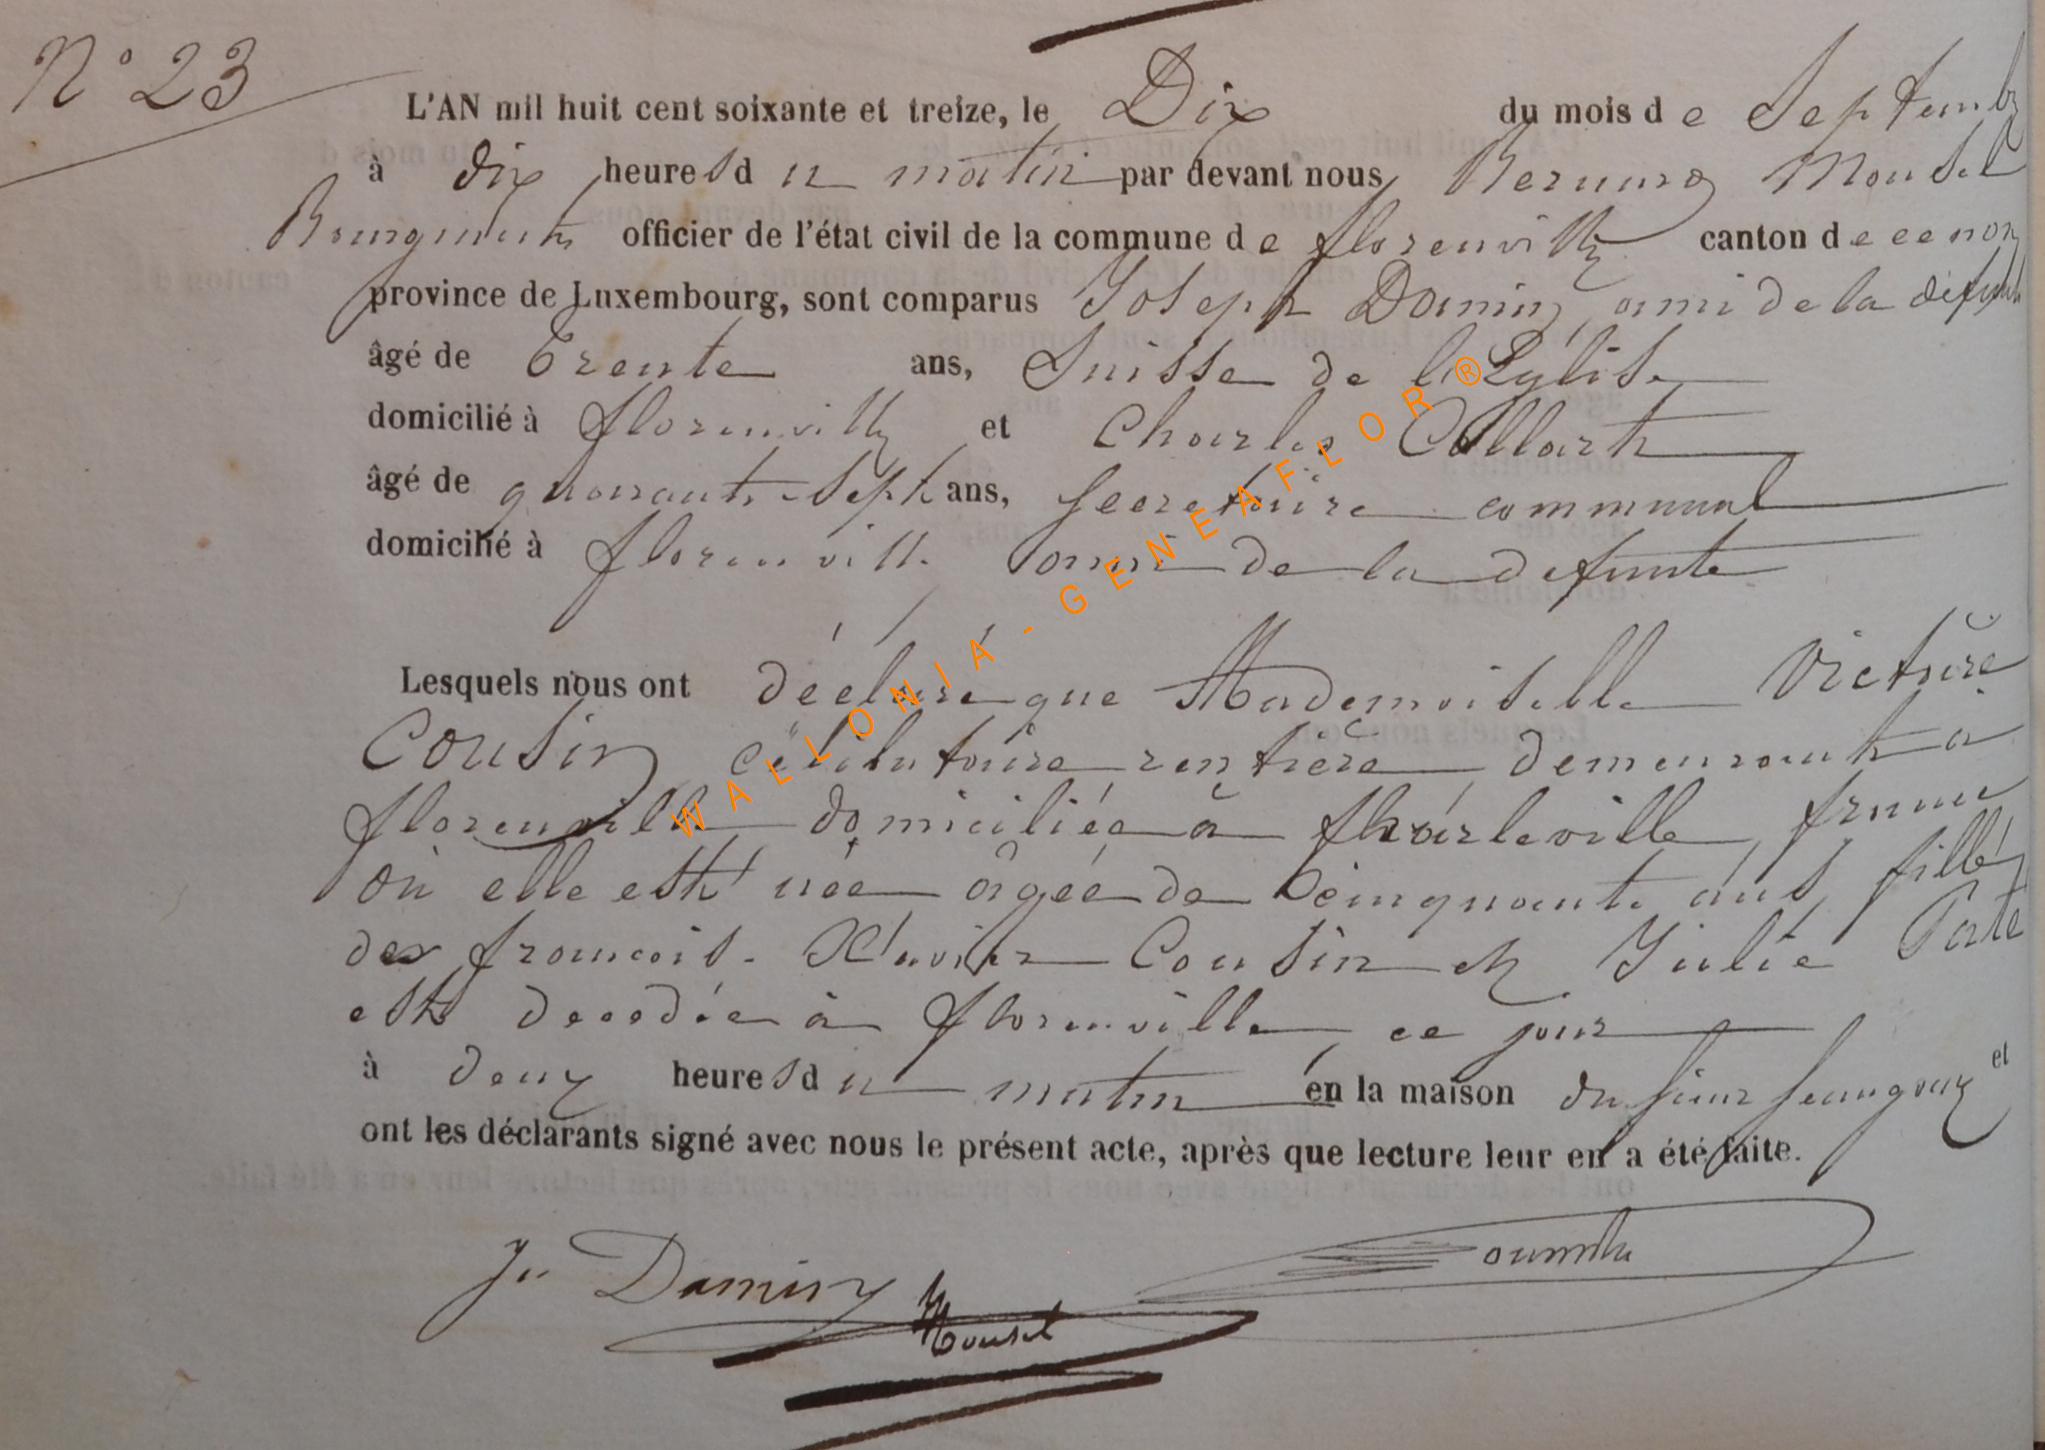 N° 23
L'AN mil huit cent soixante et treize, le Dix du mois de Septemb
à dix heures du matin par devant nous Mousel
Bourgmestre officier de l'état civil de la commune de florenville canton de ce nom
province de Luxembourg, sont comparus Joseph Damin ami de la défunte
âgé de Trente ans, Suisse de l'Eglise
domicilié à florenville et Charles Collart
âgé de quarante-sept ans, Secretaire communal
domicilié à florenville ami de la defunte
Lesquels nous ont déclaré que Mademoiselle Victoire
Cousin célibataire rentière demeurant à
florenville domiciliée à Charleville france
où elle est née âgée de Cinquante ans fille
de francois-Xavier Cousin et Julie
est decedée à florenville ce jour
à deux heures du matin en la maison du sieur et
ont les déclarants signé avec nous le présent acte, après que lecture leur en a été faite.
Damin
Mousel
WALLONIA-GENEAFLOR®